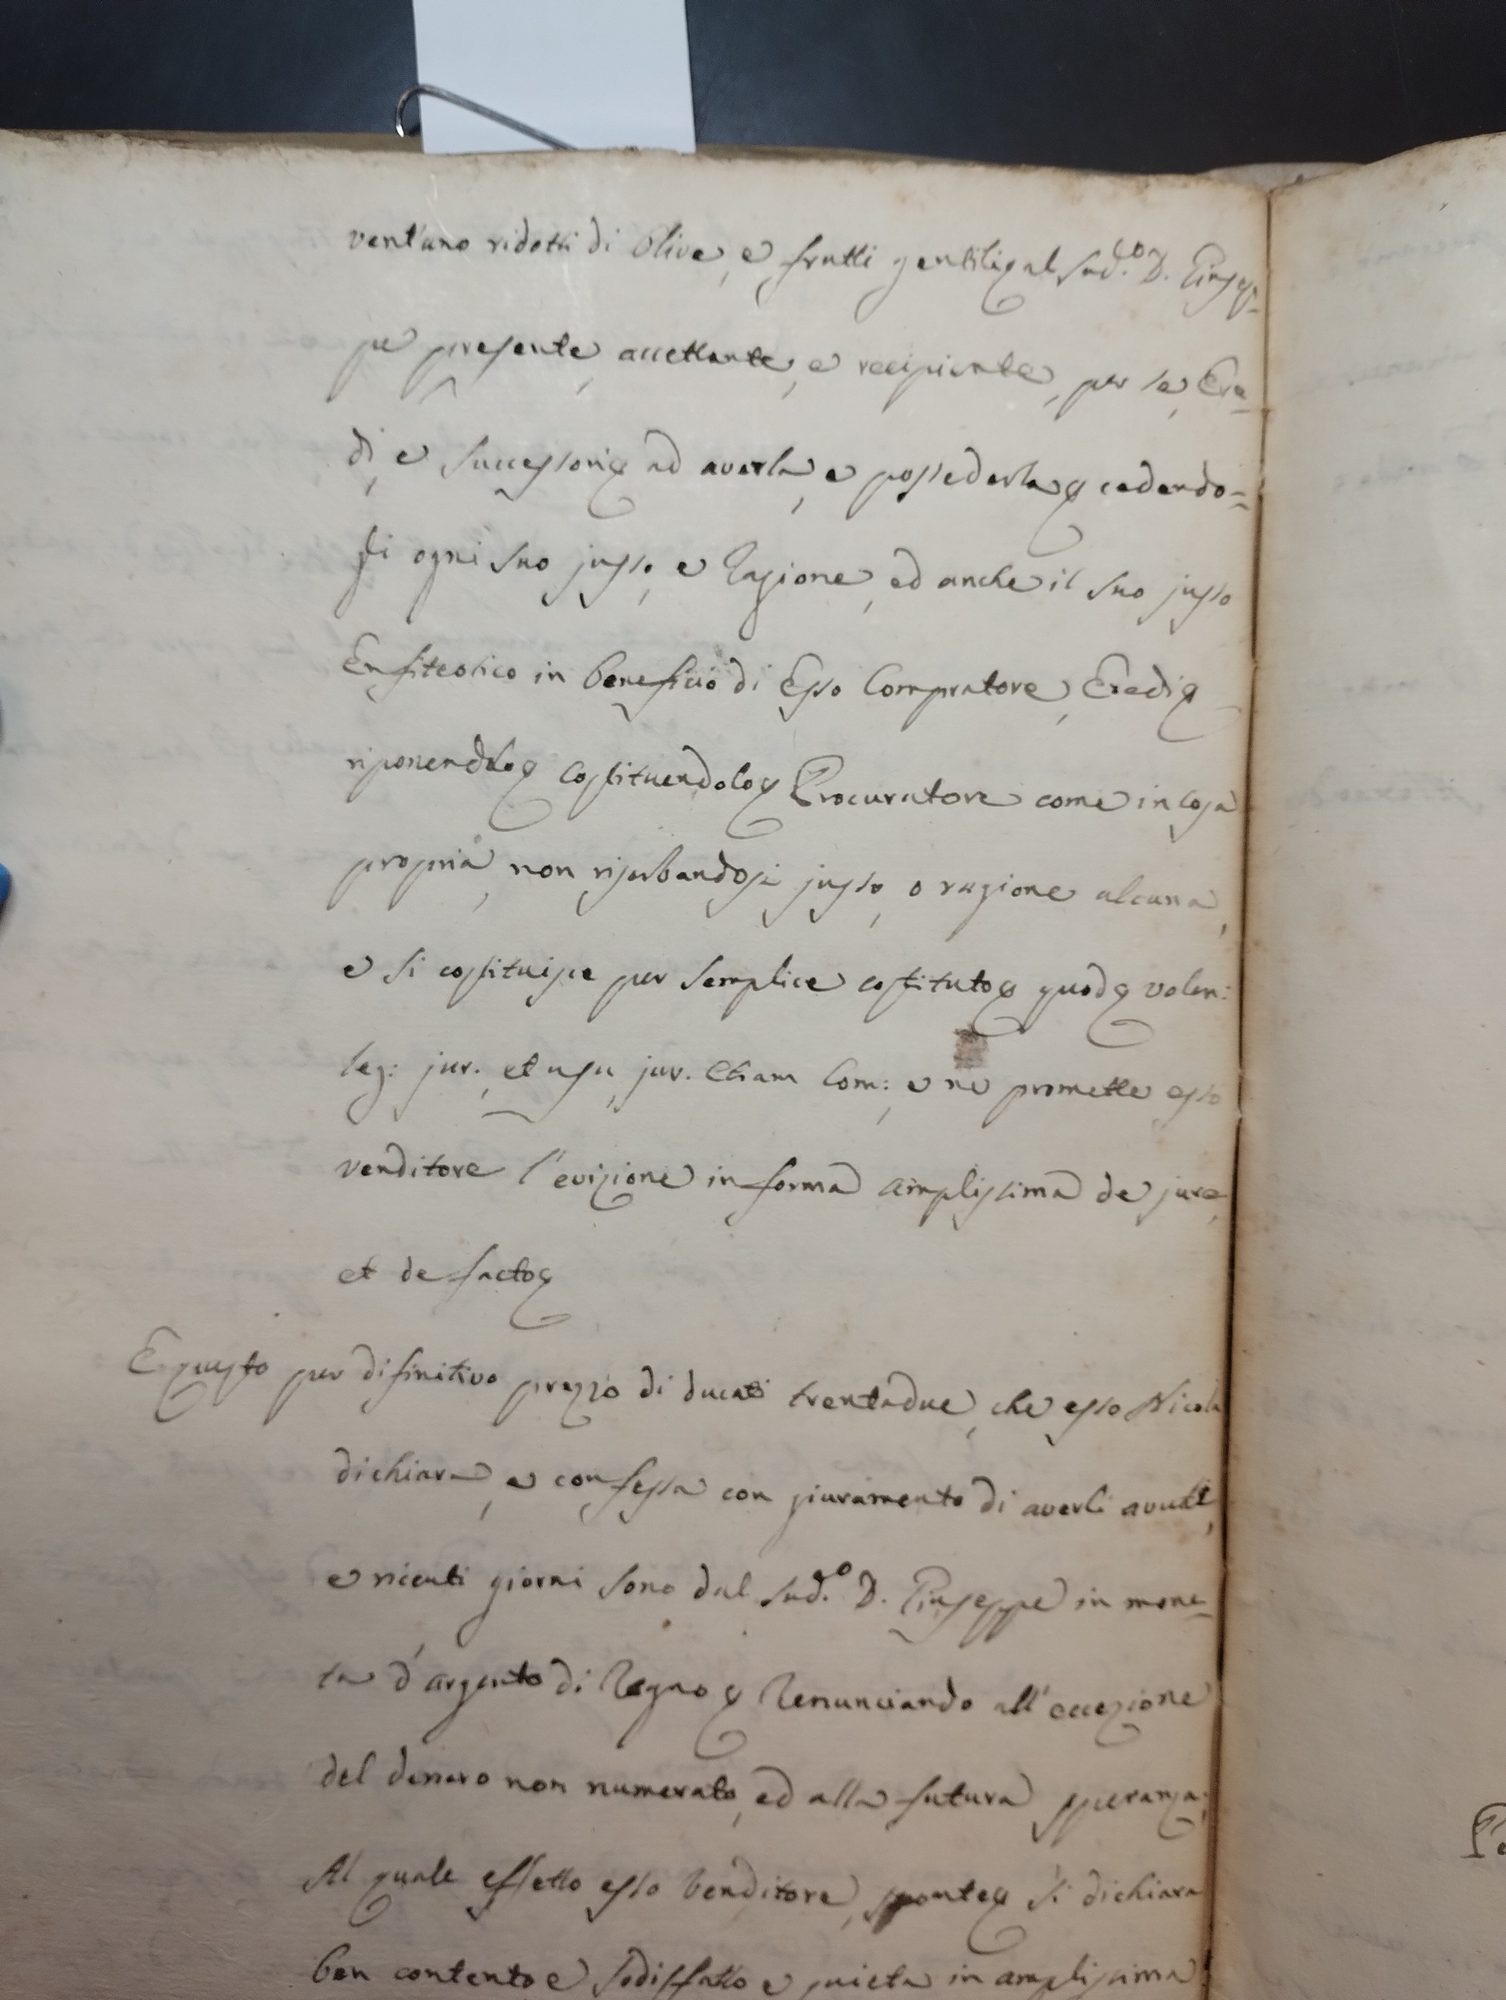 vent'uno ridotti di Olive, e frutti gentili &c al sud.to D. Giusep=
pe presente, accettante, e recipiente, per se, Ere=
di, e successori &c ad averla, e possederla &c cedendo=
li ogni suo jusso, e ragione, ed anche il suo jusso
Enfiteotico in beneficio di Esso Compratore, Eredi &c
riponendolo &c costituendolo &c Procuratore come in cosa
propria, non riserbandosi jusso, o ragione alcuna,
e si costituisce per semplice costituto &c quod &c volen:
leg: jur., et usu, jur. etiam Com:, e ne promette esso
venditore l'evizione in forma amplissima de jure,
et de facto &c
E questo per difinitivo prezzo di ducati trentadue, che esso Nicola
dichiara, e confessa con giuramento di averli avuti,
e ricenti giorni sono dal sud.o D. Giuseppe in mone=
ta d'argento di Regno &c Renunciando all'eccezione
del denaro non numerato, ed alla futura speranza;
Al quale effetto esso Venditore, sponte &c si dichiara
ben contento e sodisfatto e quieta in amplissima